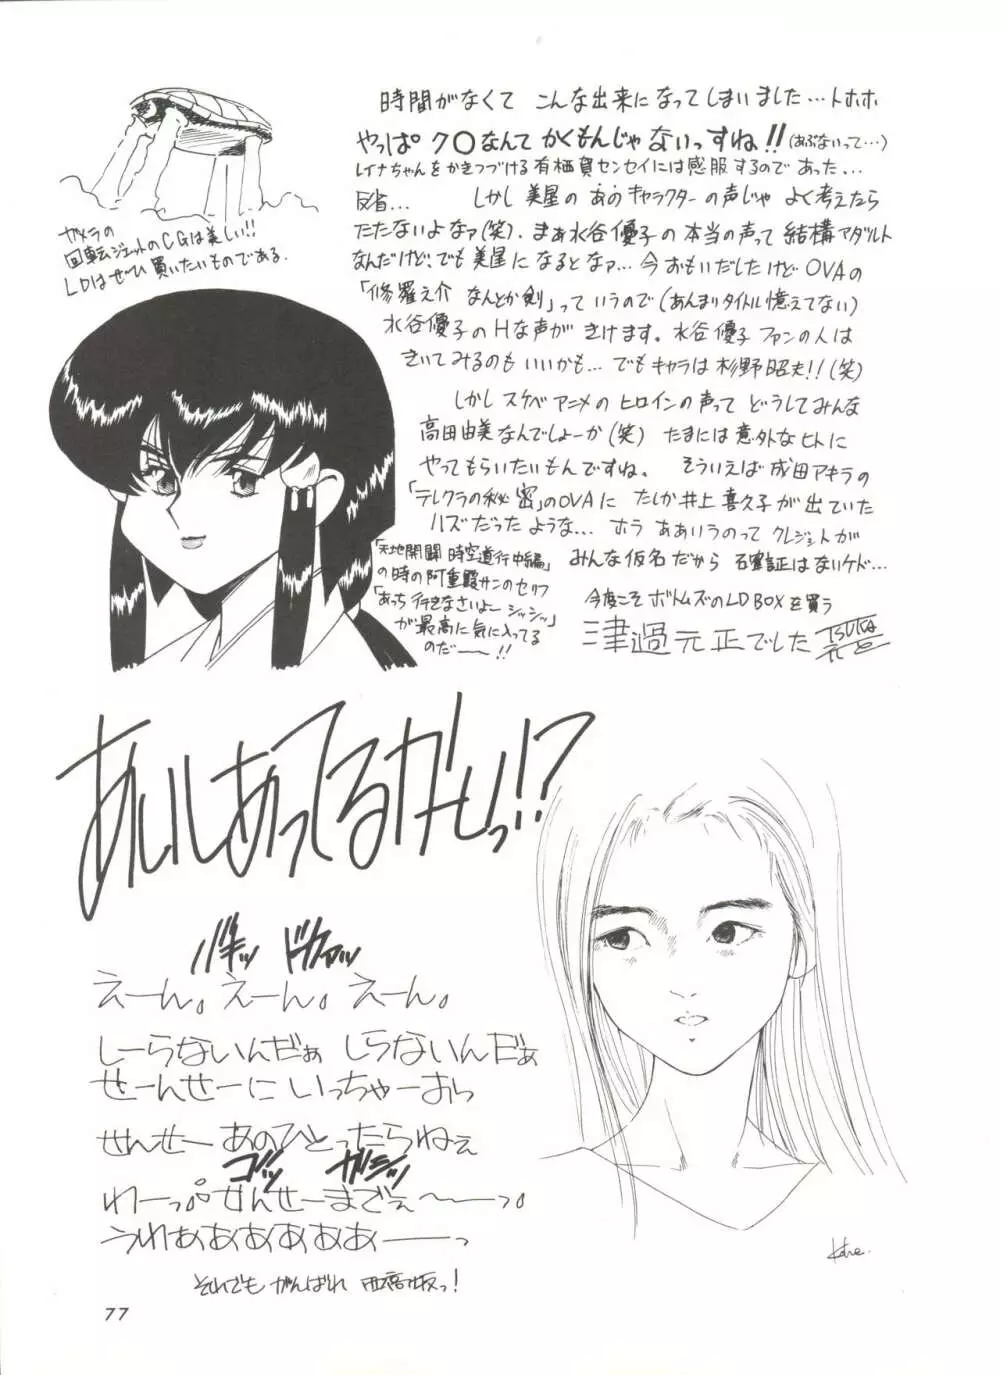 時間がなくて こんな出来になってしまいました…トホホ
やっぱ ク〇なんて かくもんじゃ ないっすね!!(あぶないって…)
レイナちゃんをかきつづける有栖賀センセイには感服するのであった…
反省… しかし 美星の あのキャラクターの声じゃ よく考えたら
たたないよなァ(笑). まぁ水谷優子の本当の声って 結構アダルト
なんだけど、でも美星になるとなァ… 今おもいだしたけどOVAの
「修羅之介 なんとか剣」って いうので(あんまりタイトル憶えてない)
水谷優子のHな声が きけます。水谷優子ファンの人は
きいてみるのも いいかも… でもキャラは杉野昭夫!!(笑)
しかし スケベアニメの ヒロインの声って どうしてみんな
高田由美なんでしょーか(笑) たまには意外なヒトに
やってもらいたいもんですね。 そういえば 成田アキラの
「テレクラの秘密」のOVAに たしか井上喜久子が出ていた
ハズだったような… ホラ ああいうのって クレジットが
みんな仮名だから 確証はないケド…
今度こそ ボトムズのLD BOXを買う
津過元正でした
ガメラの
回転ジェットのCGは美しい!!
LDはぜひ買いたいものである.
「天地開闢 時空道行中編」
の時の阿重霞サンのセリフ
「あっち行きなさいよー シッシッ」
が最高に気に入ってる
のだー!!
あいしあってるかーいっ!?
バキッ ドカァッ
えーん。えーん。えーん。
しーらないんだぁ しらないんだぁ
せーんせーに いっちゃーおっ
せんせー あのひとったらねぇ
ゴッ ガシッ
わーっ。せんせーまでぇ〜ーっ。
うわぁああああああーっ
それでも がんばれ 西高版っ!
77